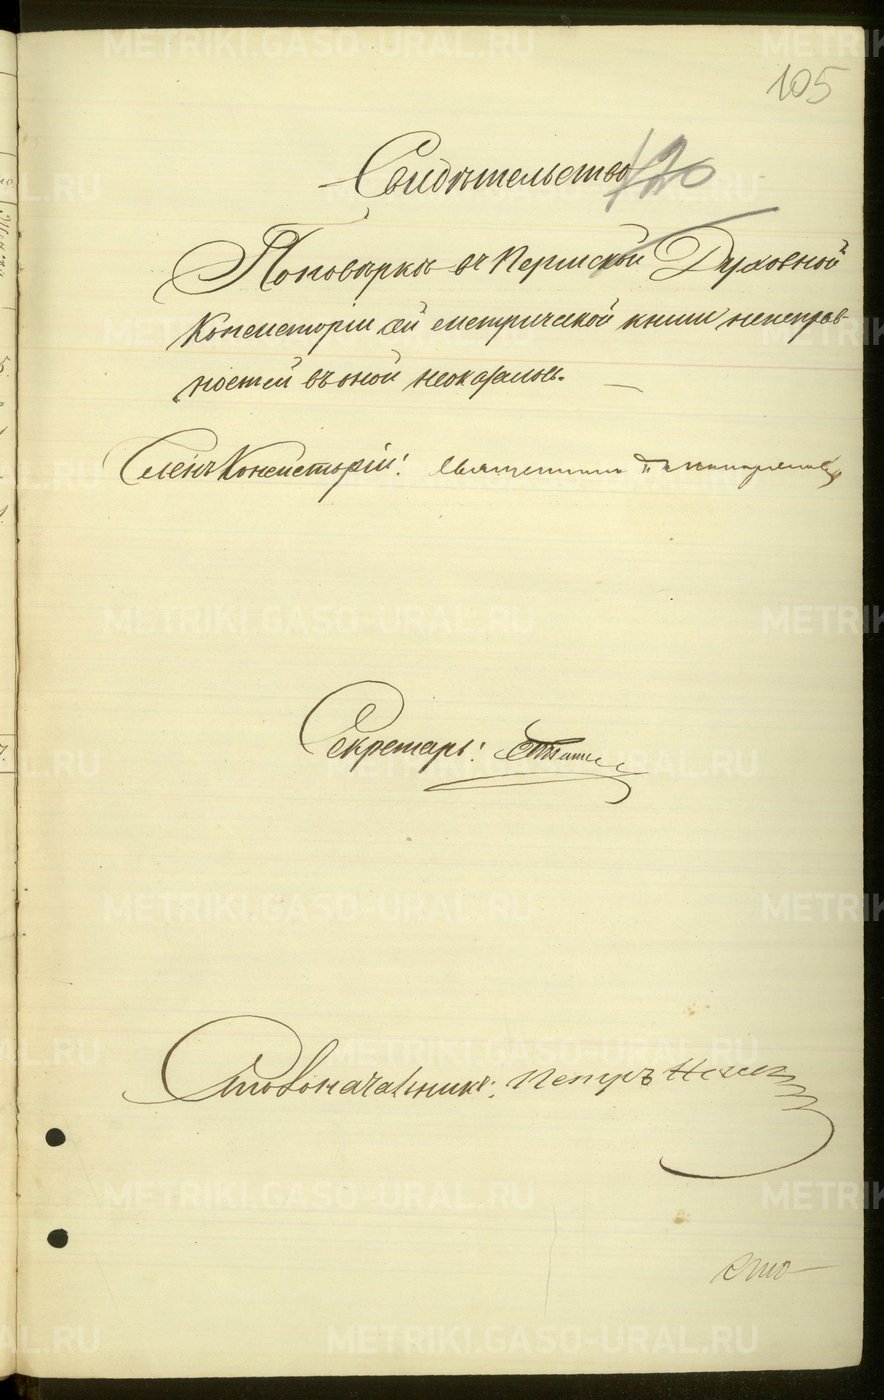 105
Свидѣтельство
По повѣркѣ въ Пермской Духовной
Консисторіи сей метрической книги неисправ-
ностей въ оной неоказалось.
Членъ Консисторіи: Священникъ
Секретарь:
Столоначальникъ: Петръ
METRIKI.GASO-URAL.RU